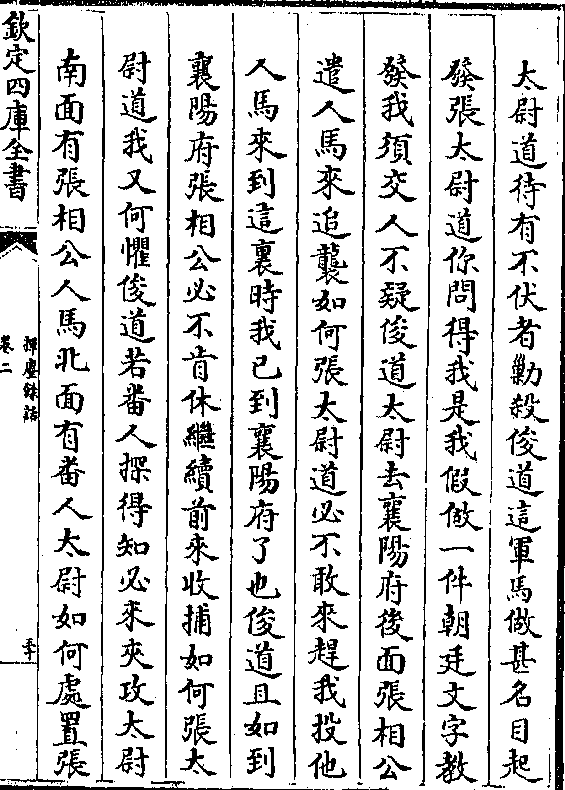 太尉道待有不伏者勦殺俊道這軍馬做甚名目起
發張太尉道你問得我是我假做一件朝廷文字教
發我須交人不疑俊道太尉去襄陽府後面張相公
遣人馬來追襲如何張太尉道必不敢來趕我投他
人馬來到這裏時我已到襄陽府了也俊道且如到
襄陽府張相公必不肯休繼續前來收捕如何張太
尉道我又何懼俊道若番人探得知必來夾攻太尉
南面有張相公人馬北面有番人太尉如何處置張
欽定四庫全書
揮麈錄話
卷二